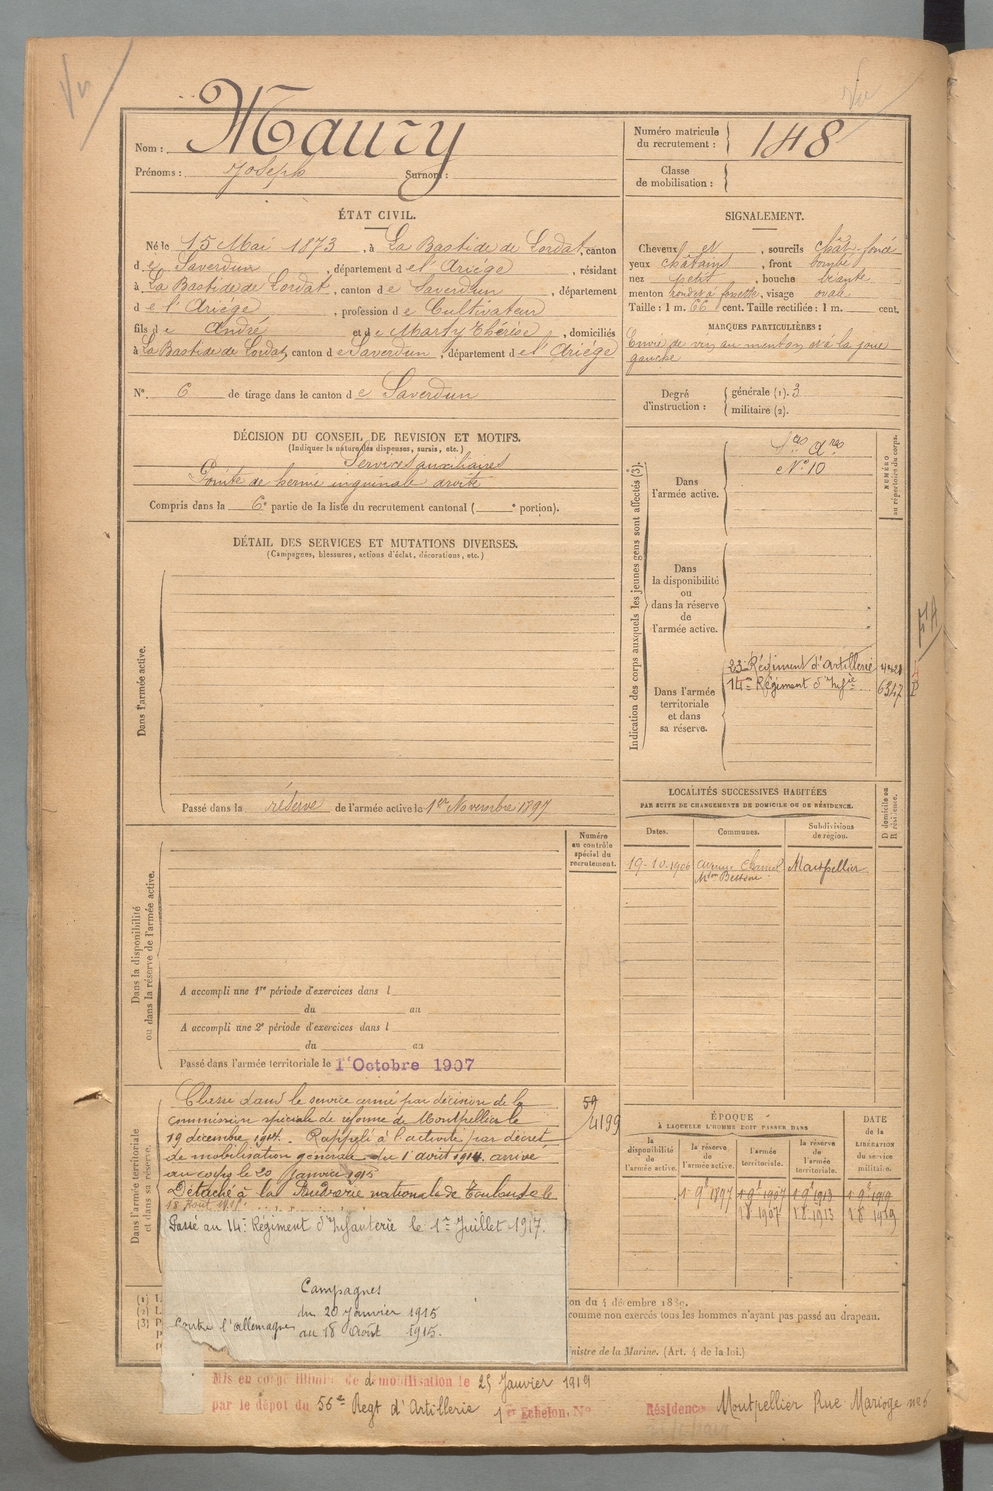 Vu
Vu
Nom : Maury
Prénoms : Joseph Surnom :
Numéro matricule du recrutement : 148
Classe de mobilisation :
ÉTAT CIVIL.
Né le 15 Mai 1873, à La Bastide de Lordat, canton
de Saverdun, département de l'Ariège, résidant
à La Bastide de Lordat, canton de Saverdun, département
de l'Ariège, profession de Cultivateur
fils de André et de Marty Thérèse, domiciliés
à La Bastide de Lordat, canton de Saverdun, département de l'Ariège
N° 6 de tirage dans le canton de Saverdun
SIGNALEMENT.
Cheveux et, sourcils chât. foncé
yeux châtains, front bombé
nez petit, bouche
menton rond et à fossette, visage ovale
Taille : 1 m. 66 cent. Taille rectifiée : 1 m. cent.
MARQUES PARTICULIÈRES :
Envie de vin au menton et à la joue
gauche
Degré d'instruction : générale (1). 3
militaire (2).
DÉCISION DU CONSEIL DE REVISION ET MOTIFS.
(Indiquer la nature des dispenses, sursis, etc.)
Services auxiliaires
Pointe de hernie inguinale droite
Compris dans la 6e partie de la liste du recrutement cantonal ( e portion).
DÉTAIL DES SERVICES ET MUTATIONS DIVERSES.
(Campagnes, blessures, actions d'éclat, décorations, etc.)
Dans l'armée active.
Passé dans la réserve de l'armée active le 1er Novembre 1897
Indication des corps auxquels les jeunes gens sont affectés (3).
NUMÉRO au répertoire du corps.
Dans l'armée active.
N° 10
Dans la disponibilité ou dans la réserve de l'armée active.
Dans l'armée territoriale et dans sa réserve.
23e Régiment d'Artillerie
14e Régiment d'Infie 6347
LOCALITÉS SUCCESSIVES HABITÉES
PAR SUITE DE CHANGEMENTS DE DOMICILE OU DE RÉSIDENCE.
Dates. Communes. Subdivisions de région.
D domicile ou R résidence.
19-10-1906 Montpellier
Dans la disponibilité ou dans la réserve de l'armée active.
Numéro au contrôle spécial du recrutement.
A accompli une 1re période d'exercices dans l
du au
A accompli une 2e période d'exercices dans l
du au
Passé dans l'armée territoriale le 1er Octobre 1907
Dans l'armée territoriale et dans sa réserve.
Classé dans le service armé par décision de la
commission spéciale de réforme de Montpellier le
19 décembre 1914. Rappelé à l'activité par décret
de mobilisation générale du 1er août 1914. arrivé
au corps le 20 Janvier 1915
Détaché à la Poudrerie nationale de Toulouse le
18 Août 1915.
59
4199
Passé au 14e Régiment d'Infanterie le 1er Juillet 1917.
Campagnes
Contre l'allemagne du 20 Janvier 1915
au 18 Août 1915.
ÉPOQUE
À LAQUELLE L'HOMME DOIT PASSER DANS
la disponibilité de l'armée active. la réserve de l'armée active. l'armée territoriale. la réserve de l'armée territoriale.
DATE de la LIBÉRATION du service militaire.
1 9e 1897 1 9e 1907 1 9e 1913 1 9e 1919
1 8 1907 1 8 1913 1 8 1919
(1)
(2)
(3)
on du 4 décembre 1889.
comme non exercés tous les hommes n'ayant pas passé au drapeau.
nistre de la Marine. (Art. 4 de la loi.)
Mis en congé illimité de démobilisation le 25 Janvier 1919
par le dépôt du 56e Regt d'Artillerie 1er Echelon, N°
Résidence Montpellier Rue Marioge no 6